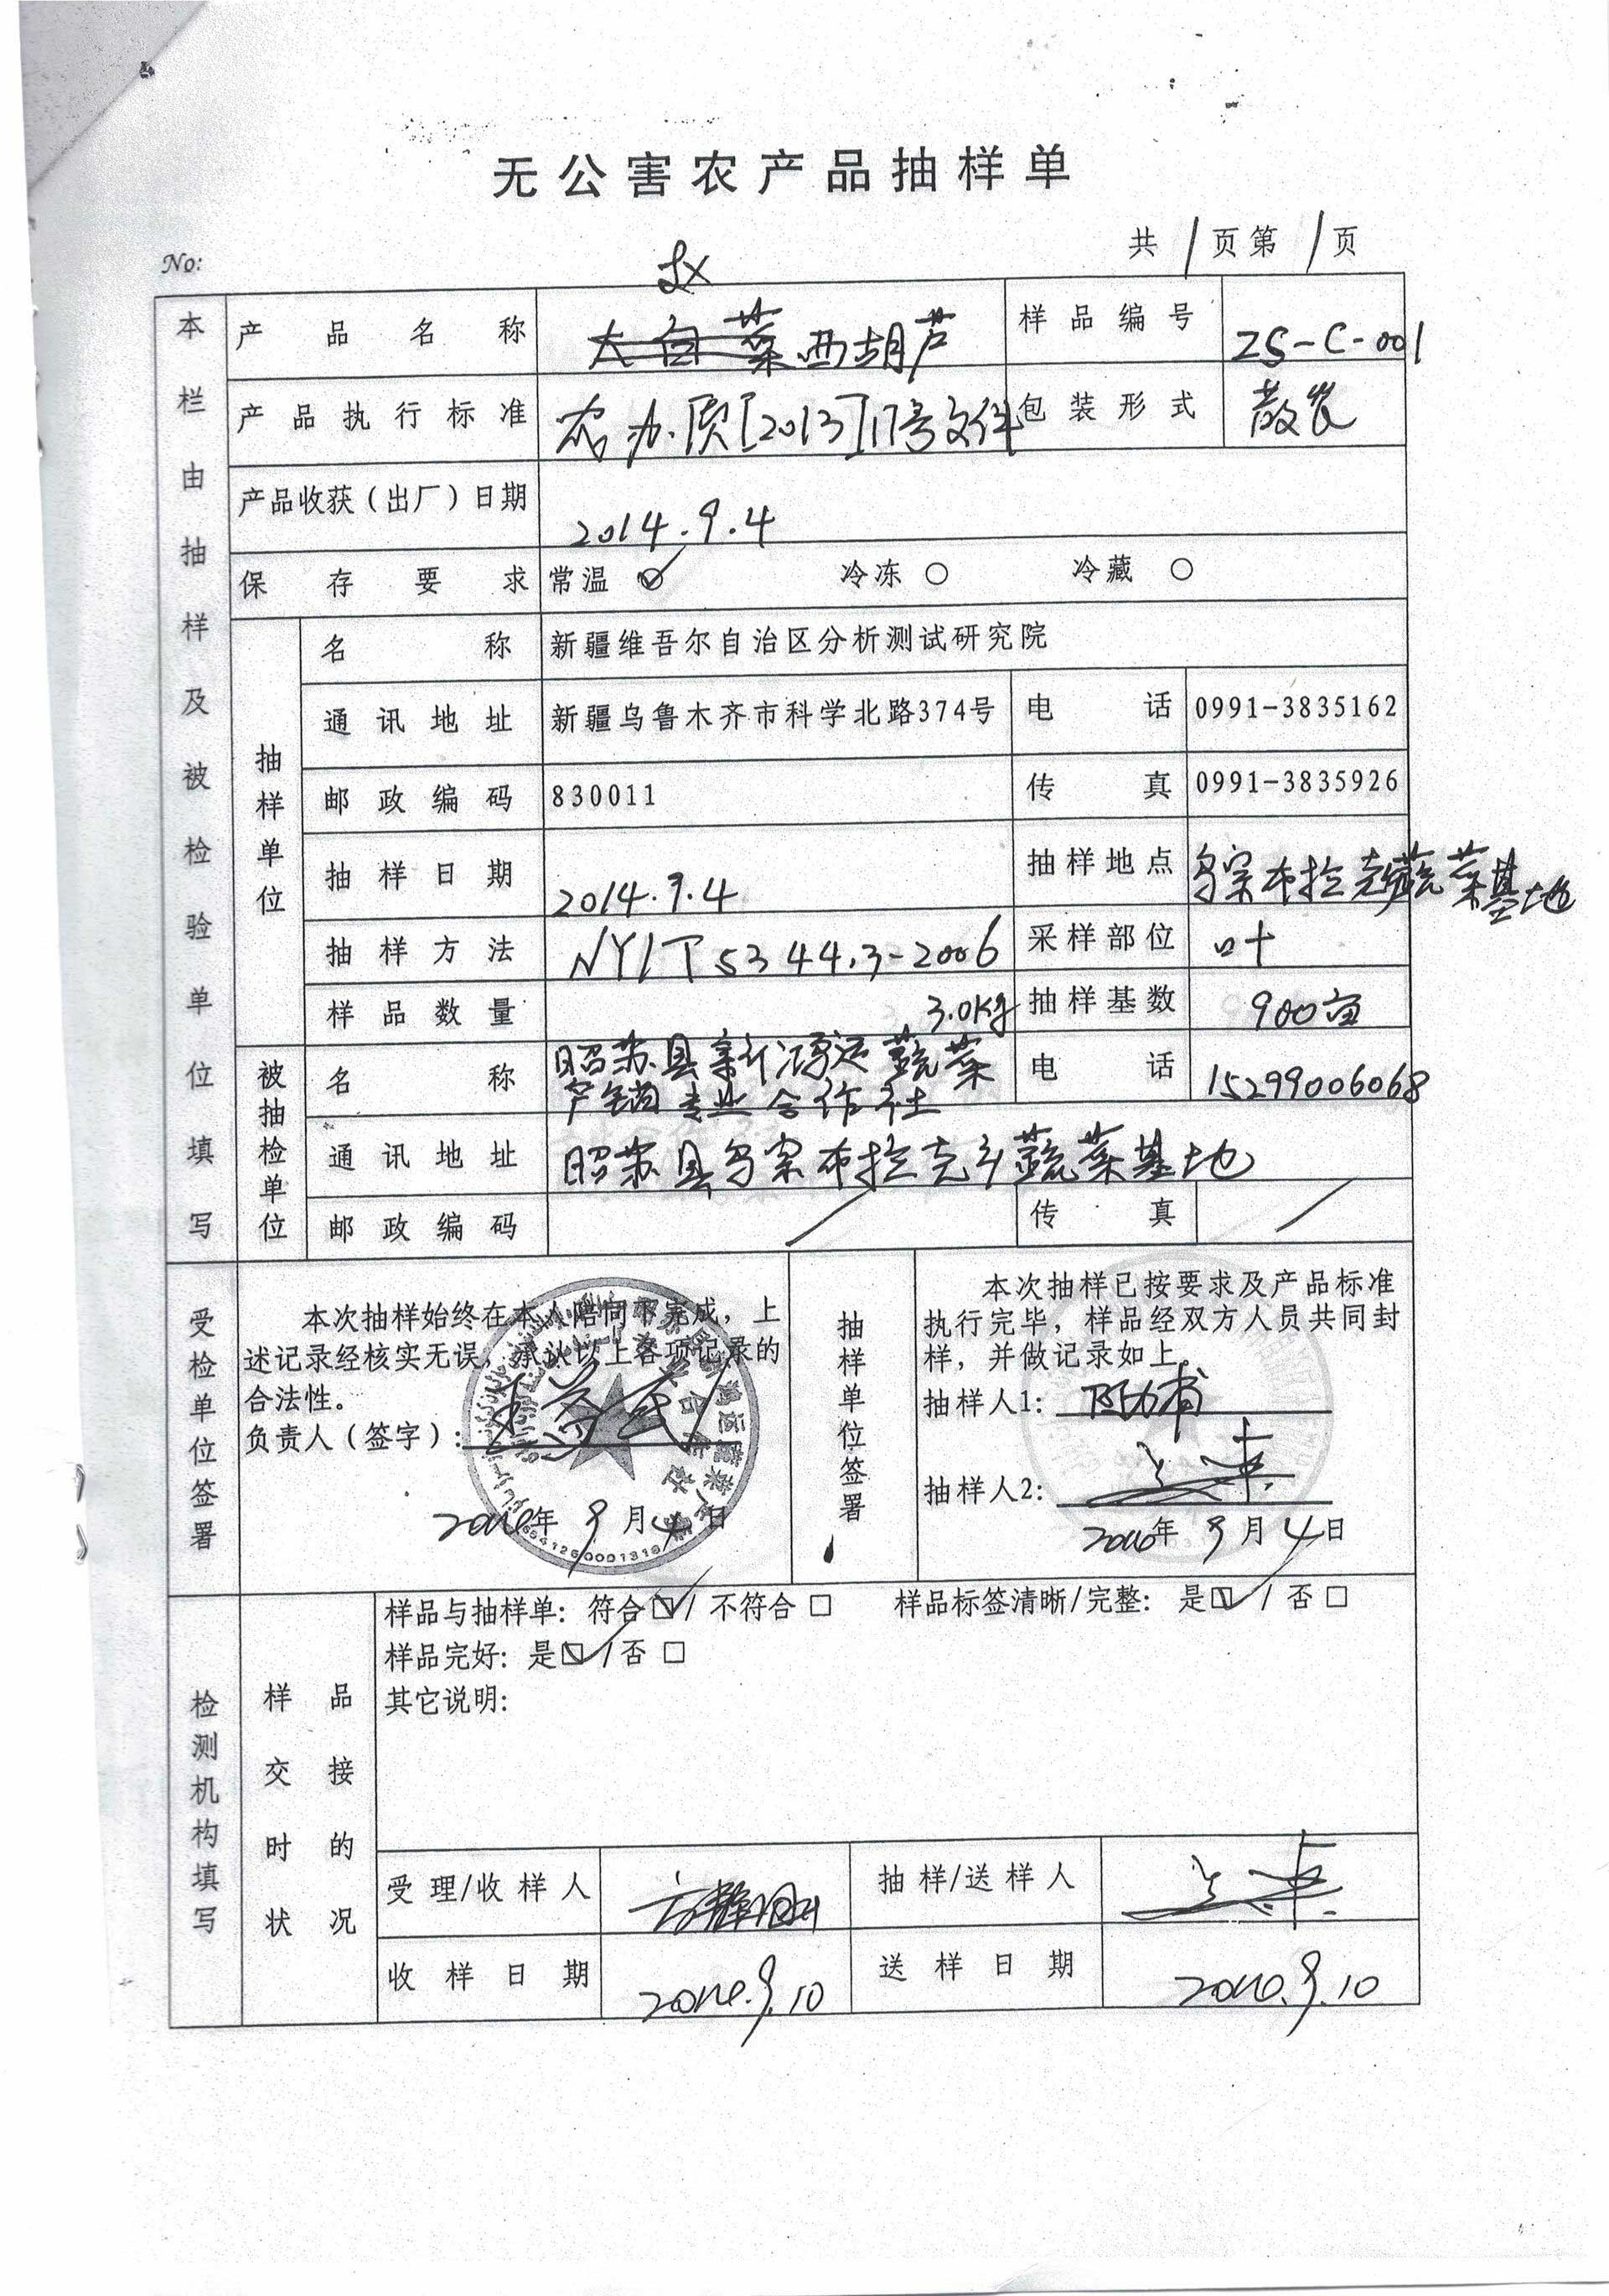 无公害农产品抽样单
No:
共 1 页第 1 页
产品名称 大白菜 西胡芦 样品编号 ZS-C-001
产品执行标准 农办质[2013]17号文件 包装形式 散装
产品收获（出厂）日期 2014.9.4
保存要求 常温 冷冻 ○ 冷藏 ○
本栏由抽样及被检验单位填写
抽样单位
名称 新疆维吾尔自治区分析测试研究院
通讯地址 新疆乌鲁木齐市科学北路374号 电话 0991-3835162
邮政编码 830011 传真 0991-3835926
抽样日期 2014.9.4 抽样地点 乌宗布拉克蔬菜基地
抽样方法 NY/T 5344.3-2006 采样部位 叶
样品数量 3.0Kg 抽样基数 900亩
被抽检单位
名称 昭苏县新鸿运蔬菜
产销专业合作社 电话 15299006068
通讯地址 昭苏县乌宗布拉克乡蔬菜基地
邮政编码 / 传真 /
受检单位签署
本次抽样始终在本人陪同下完成，上
述记录经核实无误，承认以上各项记录的
合法性。
负责人（签字）：
2014年 9 月 4 日
抽样单位签署
本次抽样已按要求及产品标准
执行完毕，样品经双方人员共同封
样，并做记录如上。
抽样人1：
抽样人2：
2014年 9 月 4 日
检测机构填写
样品交接时的状况
样品与抽样单：符合☑/不符合□ 样品标签清晰/完整：是☑/否□
样品完好：是☑/否□
其它说明：
受理/收样人 抽样/送样人
收样日期 2014.9.10 送样日期 2014.9.10